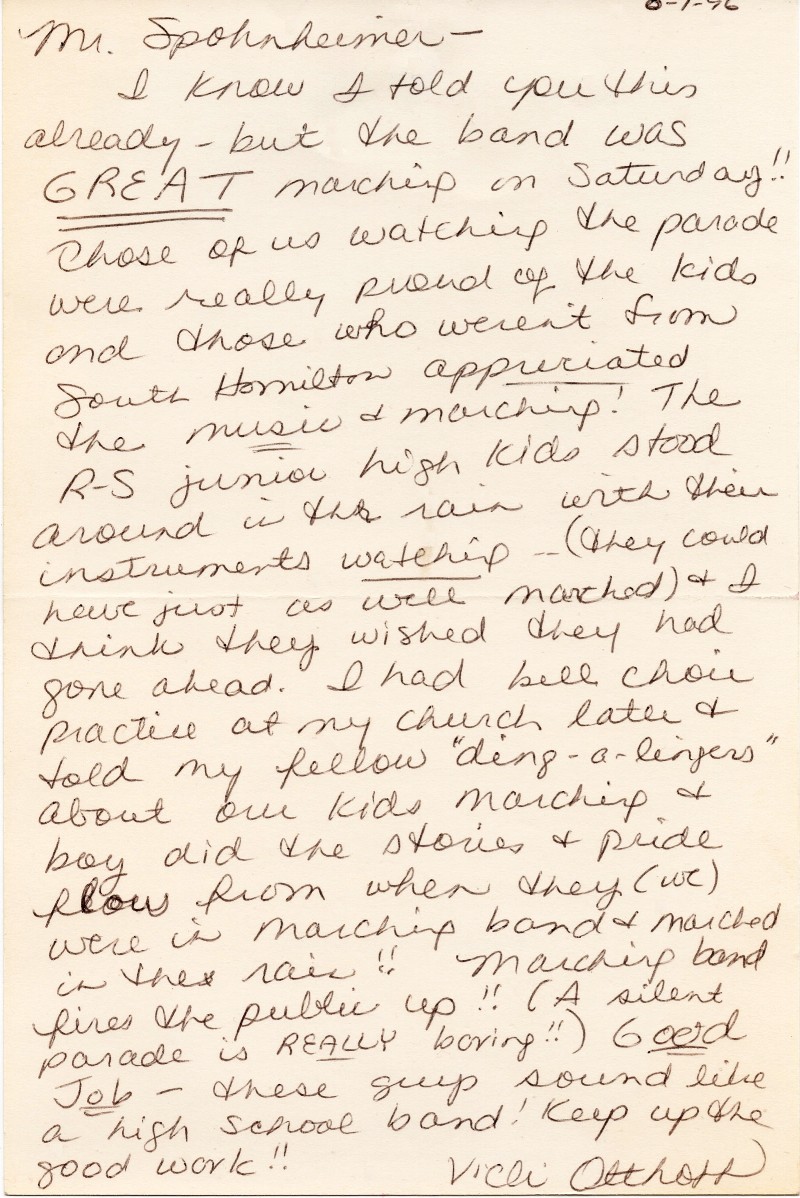 6-7-96
Mr. Spohnheimer -
I know I told you this
already - but the band was
GREAT marching on Saturday!!
Those of us watching the parade
were really proud of the kids
and those who weren't from
South Hamilton appreciated
the music & marching! The
R-S junior high kids stood
around in the rain with their
instruments watching -- (they could
have just as well marched) & I
think they wished they had
gone ahead. I had bell choir
practice at my church later &
told my fellow "ding-a-lingers"
about our kids marching &
boy did the stories & pride
flow from when they (we)
were in marching band & marched
in the rain!! Marching band
fires the public up!! (A silent
parade is REALLY boring!!) Good
Job - these guys sound like
a high school band! Keep up the
good work!! Vicli Otthoff